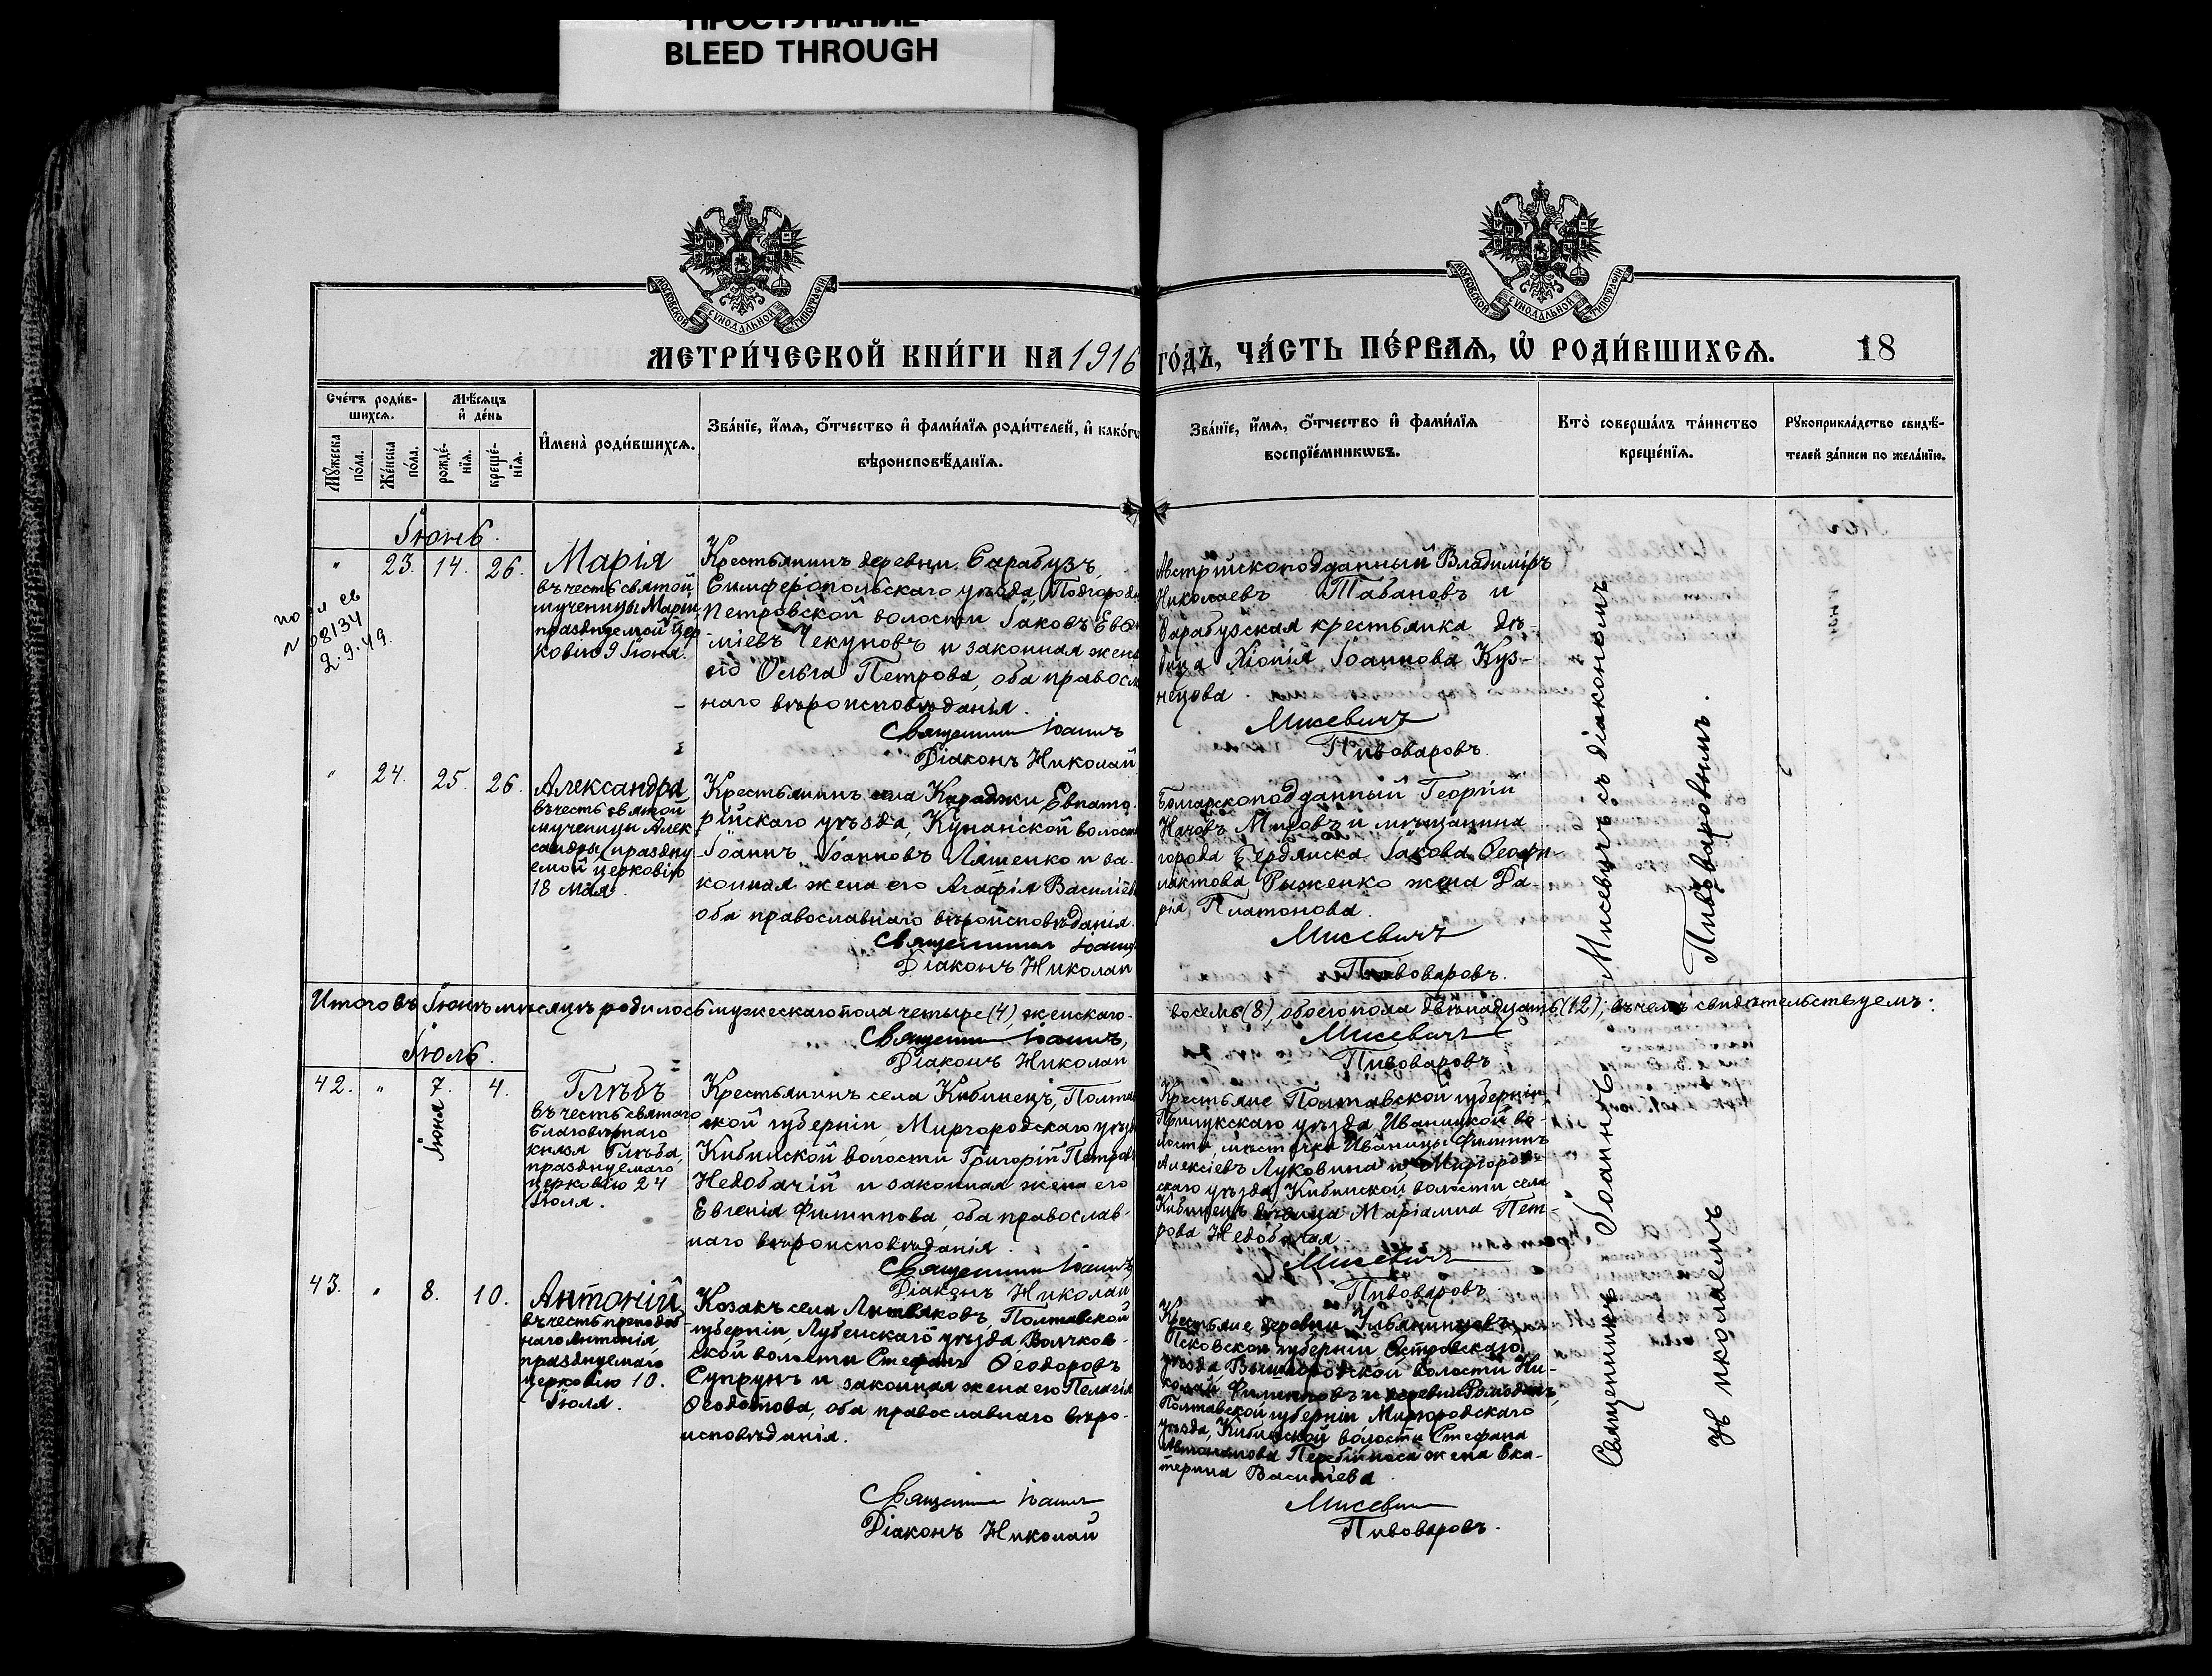 ПРОСТУПАНИЕ
BLEED THROUGH
МОСКОВСКОЙ СѴНОДАЛЬНОЙ ТИПОГРАФІИ
МОСКОВСКОЙ СѴНОДАЛЬНОЙ ТИПОГРАФІИ
МЕТРИ́ЧЕСКОЙ КНИ́ГИ НА 1916 ГО́ДЪ, ЧА́СТЬ ПЕ́РВАЯ, Ѡ РОДИ́ВШИХСЯ. 18
Сче́тъ роди́в-
шихся.
Мѣ́сяцъ
и де́нь
Му́жеска
по́ла.
Же́нска
по́ла.
рожде́-
нїя.
креще́-
нїя.
Имена̀ роди́вшихся.
Зва́нїе, и́мя, о́тчество и фами́лїя роди́телей, и како́гѡ
вѣроисповѣ́данїя.
Зва́нїе, и́мя, о́тчество и фами́лїя
воспрїе́мникѡвъ.
Кто̀ соверша́лъ та́инство
креще́нїя.
Рукоприкла́дство свидѣ́-
телей за́писи по жела́нїю.
Іюнь.
" 23. 14. 26.
N 08134
2.9.49.
Марія
въ честь святой
мученицы Маріи,
празднуемой цер
ковію 9 Іюня.
Крестьянинъ деревни Сарабузъ,
Симферопольскаго уѣзда, Подгородне
Петровской волости Іаковъ Евѳи
-міевъ Чекуновъ и законная жена
его Ольга Петрова, оба правосла
наго вѣроисповѣданія.
Священникъ Іоаннъ
Діаконъ Николай
Австрійскоподданный Владиміръ
Николаевъ Табановъ и
Сарабузская крестьянка дѣ-
вица Хіонія Іоаннова Куз-
нецова.
Мисевичъ
Пивоваровъ.
" 24. 25. 26.
Александра
въ честь святой
мученицы Алек
сандры, праздну
емой церковію
18 Мая.
Крестьянинъ села Караджи Евпато-
рійскаго уѣзда, Кунанской волости
Іоаннъ Іоанновъ Ляшенко и за-
конная жена его Агафія Василіева
оба православнаго вѣроисповѣданія.
Священникъ Іоаннъ
Діаконъ Николай
Болгарскоподданный Георгій
Начовъ Мировъ и мѣщанина
города Бердянска Іакова Ѳеофи-
лактова Рыженко жена Да-
рія Платонова.
Мисевичъ
Пивоваровъ.
Итого въ Іюнѣ мѣсяцѣ родилось мужескаго пола четыре (4), женскаго- восемь (8), обоего пола двѣнадцать (12); въ чемъ свидѣтельствуемъ:
Священникъ Іоаннъ,
Діаконъ Николай
Мисевичъ
Пивоваровъ
Іюль.
42. " 7. 4.
Іюня
Глѣбъ
въ честь святаго
благовѣрнаго
князя Глѣба,
празднуемаго
церковію 24
Іюля.
Крестьянинъ села Кибинецъ, Полтав
ской губерніи, Миргородскаго уѣзда
Кибинской волости Григорій Петровъ
Недобачій и законная жена его
Евгенія Филиппова, оба православ-
наго вѣроисповѣданія.
Священникъ Іоаннъ
Діаконъ Николай
Крестьяне Полтавской губерніи,
Прилукскаго уѣзда, Иваницкой во-
лости, мѣстечка Иваницы Филиппъ
Алексіевъ Луковина и Миргород-
скаго уѣзда, Кибинской волости села
Кибинецъ дѣвица Маріамна Пет-
рова Недобачая.
Мисевичъ
Пивоваровъ.
43. " 8. 10.
Антоній
въ честь преподоб
наго Антонія,
празднуемаго
церковію 10.
Іюля.
Козакъ села Литвяковъ, Полтавской
губерніи, Лубенскаго уѣзда, Волчков-
ской волости Стефанъ Ѳеодоровъ
Супрунъ и законная жена его Пелагія
Ѳеодотова, оба православнаго вѣро-
исповѣданія.
Священникъ Іоаннъ
Діаконъ Николай
Крестьяне деревни
Псковской губерніи Островскаго
уѣзда, Вышгородской волости Ни-
колай Филипповъ и деревни Ромоданъ,
Полтавской губерніи, Миргородскаго
уѣзда, Кибинской волости Стефана
Автономова Перебійноса жена Ека-
терина Василіева.
Мисевичъ
Пивоваровъ.
Священникъ Іоаннъ Мисевичъ съ діакономъ
Николаемъ Пивоваровымъ.